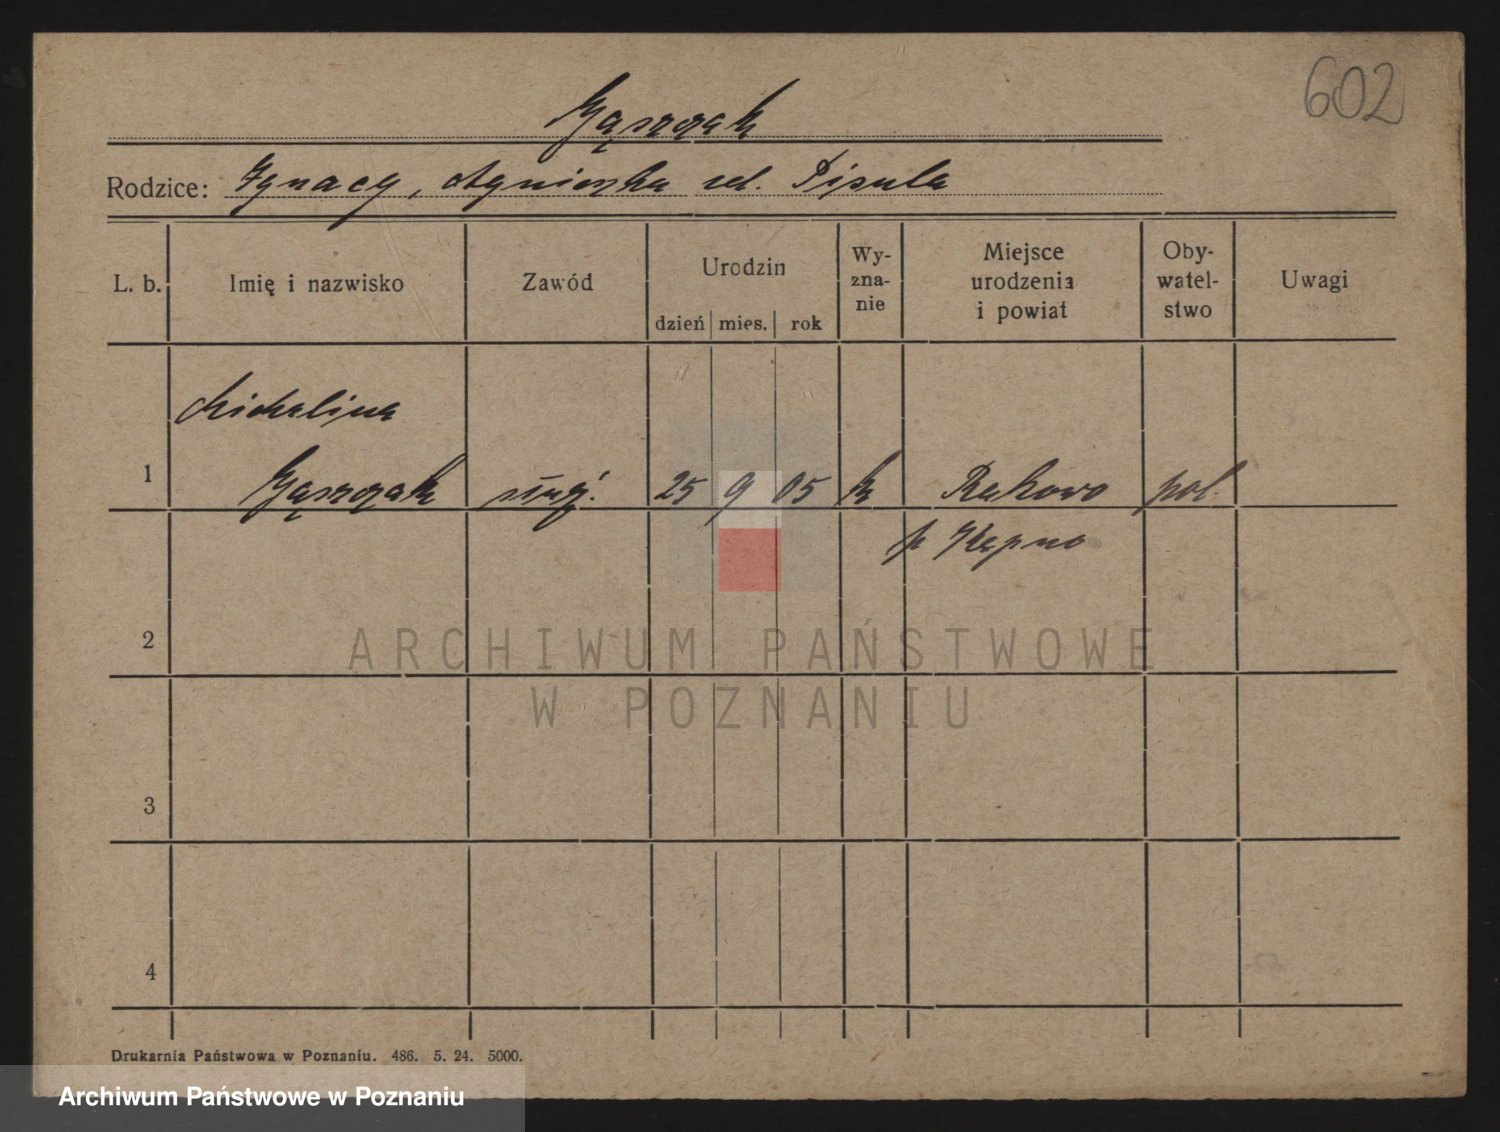 602
Gąszczak
Rodzice: Ignacy, Agnieszka zd. Pisula
L. b.
Imię i nazwisko
Zawód
Urodzin
dzień mies. rok
Wy-
zna-
nie
Miejsce
urodzenia
i powiat
Oby-
watel-
stwo
Uwagi
Michalina
1 Gąszczak służ. 25 9 05 k Rakowo pol.
p Kępno
2
3
4
ARCHIWUM PAŃSTWOWE
W POZNANIU
Drukarnia Państwowa w Poznaniu. 486. 5. 24. 5000.
Archiwum Państwowe w Poznaniu